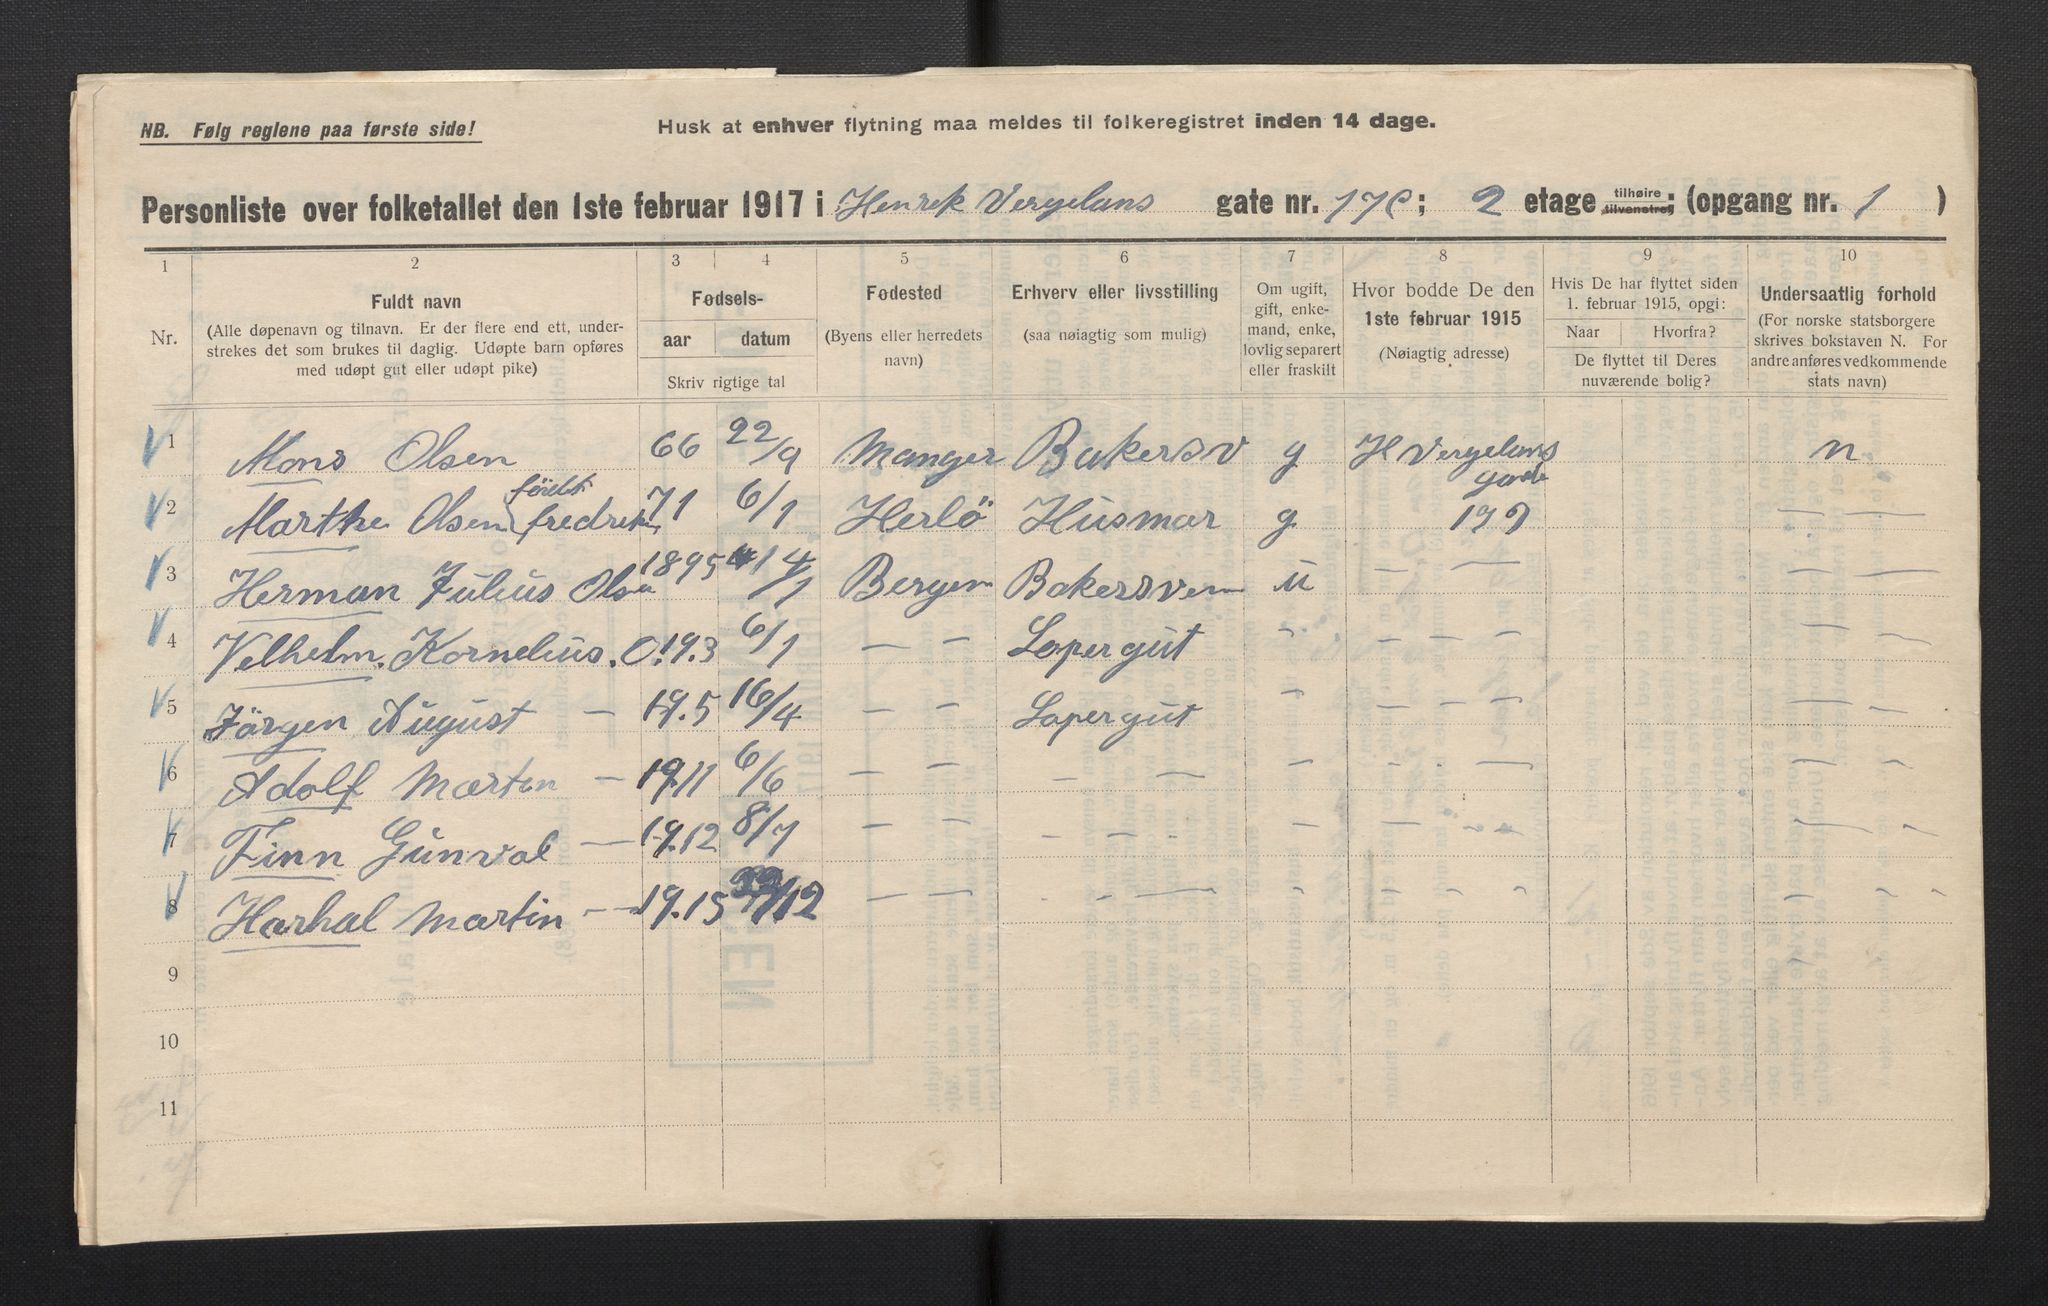 NB. Følg reglene paa første side!
Husk at enhver flytning maa meldes til folkeregistret inden 14 dage.
Personliste over folketallet den 1ste februar 1917 i Henrek Vergelans gate nr. 17C; 2 etage tilhøire tilvenstre; (opgang nr. 1 )
1 2 3 4 5 6 7 8 9 10
Nr.
Fuldt navn
(Alle døpenavn og tilnavn. Er der flere end ett, under-
strekes det som brukes til daglig. Udøpte barn opføres
med udøpt gut eller udøpt pike)
Fødsels-
aar datum
Skriv rigtige tal
Fødested
(Byens eller herredets
navn)
Erhverv eller livsstilling
(saa nøiagtig som mulig)
Om ugift,
gift, enke-
mand, enke,
lovlig separert
eller fraskilt
Hvor bodde De den
1ste februar 1915
(Nøiagtig adresse)
Hvis De har flyttet siden
1. februar 1915, opgi:
Naar Hvorfra?
De flyttet til Deres
nuværende bolig?
Undersaatlig forhold
(For norske statsborgere
skrives bokstaven N. For
andre anføres vedkommende
stats navn)
1 Mons Olsen 66 22/9 Manger Bakersv g H Vergelans n
gade
2 Marthe Olsen født fredreksen 71 6/1 Herlö Husmor g 17
3 Herman Julius Olsen 1895 14/1 Bergen Bakersven u — — — —
4 Velhelm. Kornelius. O. 19.3 6/1 — — Lopergut " — — — — —
5 Jörgen August — 19.5 16/4 — — Lopergut " — — — — —
6 Adolf Marten — 1911 6/6 — — — — " — — — — —
7 Finn Gunval — 19.12 8/7 — — — — " — — " — —
8 Harhal Martin — 19.15 /12 — — — — " " " " — —
9
10
11